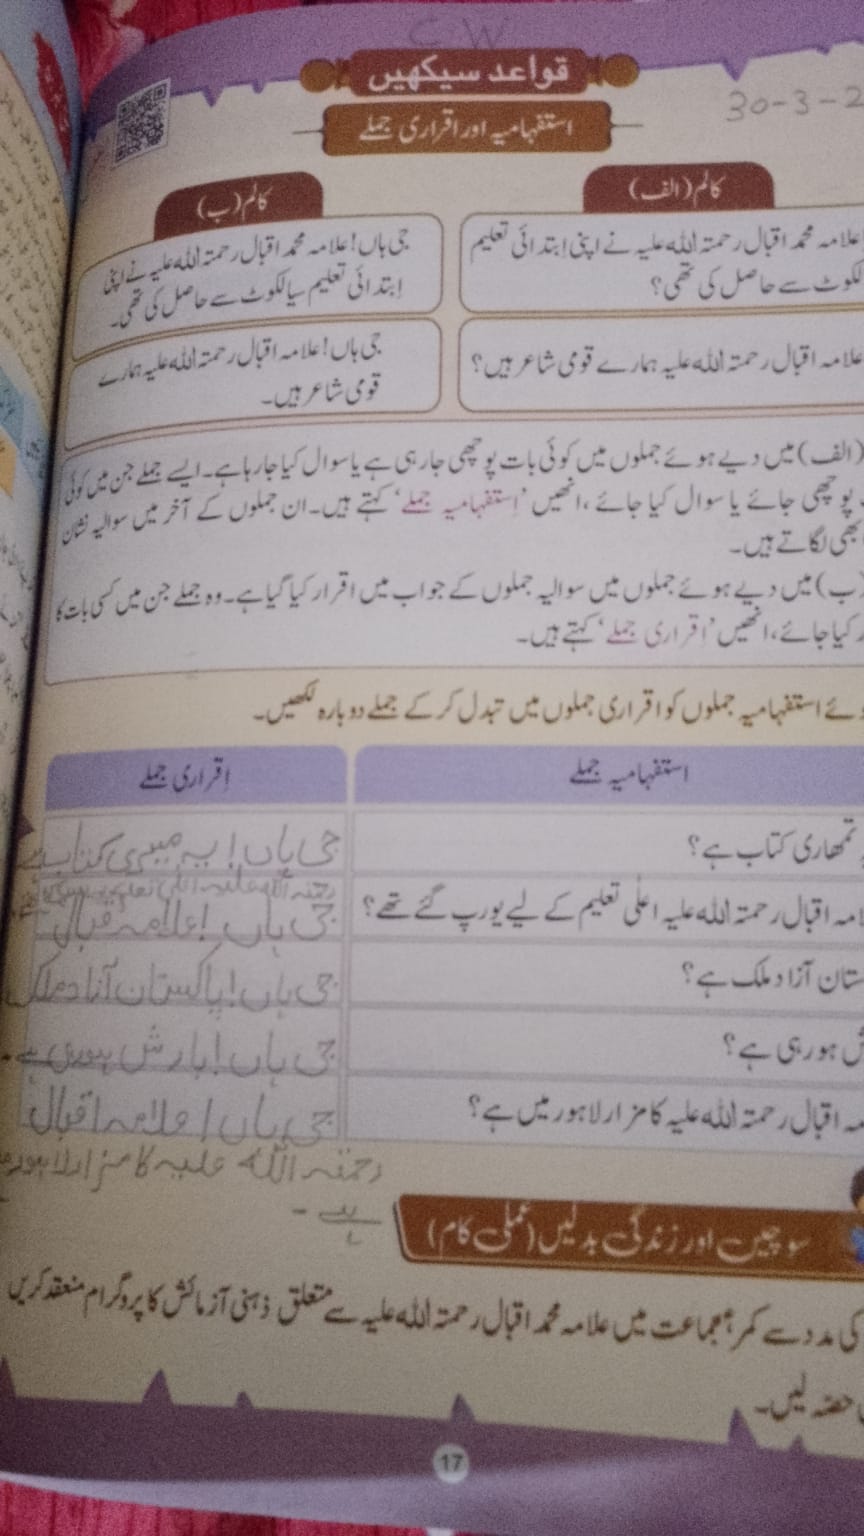 CW
30-3-2
قواعد سیکھیں
استفہامیہ اور اقراری جملے
کالم (الف)
کالم (ب)
علامہ محمد اقبال رحمتہ اللہ علیہ نے اپنی اِبتدائی تعلیم
لکوٹ سے حاصل کی تھی؟
جی ہاں! علامہ محمد اقبال رحمتہ اللہ علیہ نے اپنی
اِبتدائی تعلیم سیالکوٹ سے حاصل کی تھی۔
علامہ اقبال رحمتہ اللہ علیہ ہمارے قومی شاعر ہیں؟
جی ہاں! علامہ اقبال رحمتہ اللہ علیہ ہمارے
قومی شاعر ہیں۔
(الف) میں دیے ہوئے جملوں میں کوئی بات پوچھی جا رہی ہے یا سوال کیا جا رہا ہے۔ ایسے جملے جن میں کوئی
پوچھی جائے یا سوال کیا جائے، انھیں ’اِستفہامیہ جملے‘ کہتے ہیں۔ ان جملوں کے آخر میں سوالیہ نشان
بھی لگاتے ہیں۔
(ب) میں دیے ہوئے جملوں میں سوالیہ جملوں کے جواب میں اقرار کیا گیا ہے۔ وہ جملے جن میں کسی بات کا
کیا جائے، انھیں ’اِقراری جملے‘ کہتے ہیں۔
ئے استفہامیہ جملوں کو اقراری جملوں میں تبدل کر کے جملے دوبارہ لکھیں۔
استفہامیہ جملے
اِقراری جملے
تمھاری کتاب ہے؟
جی ہاں! یہ میری کتاب ہے
امہ اقبال رحمتہ اللہ علیہ اعلٰی تعلیم کے لیے یورپ گئے تھے؟
رحمتہ اللہ علیہ اعلی تعلیم
جی ہاں! علامہ قبال
ستان آزاد ملک ہے؟
جی ہاں! پاکستان آزاد ملک
ش ہو رہی ہے؟
جی ہاں! بارش ہورہی ہے۔
مہ اقبال رحمتہ اللہ علیہ کا مزار لاہور میں ہے؟
جی ہاں! علامہ اقبال
رحمتہ اللہ علیہ کا مزار لاہور
ہے۔
سوچیں اور زندگی بدلیں (عملی کام)
کی مدد سے کمرۂ جماعت میں علامہ محمد اقبال رحمتہ اللہ علیہ سے متعلق ذہنی آزمائش کا پروگرام منعقد کریں
حصّہ لیں۔
17